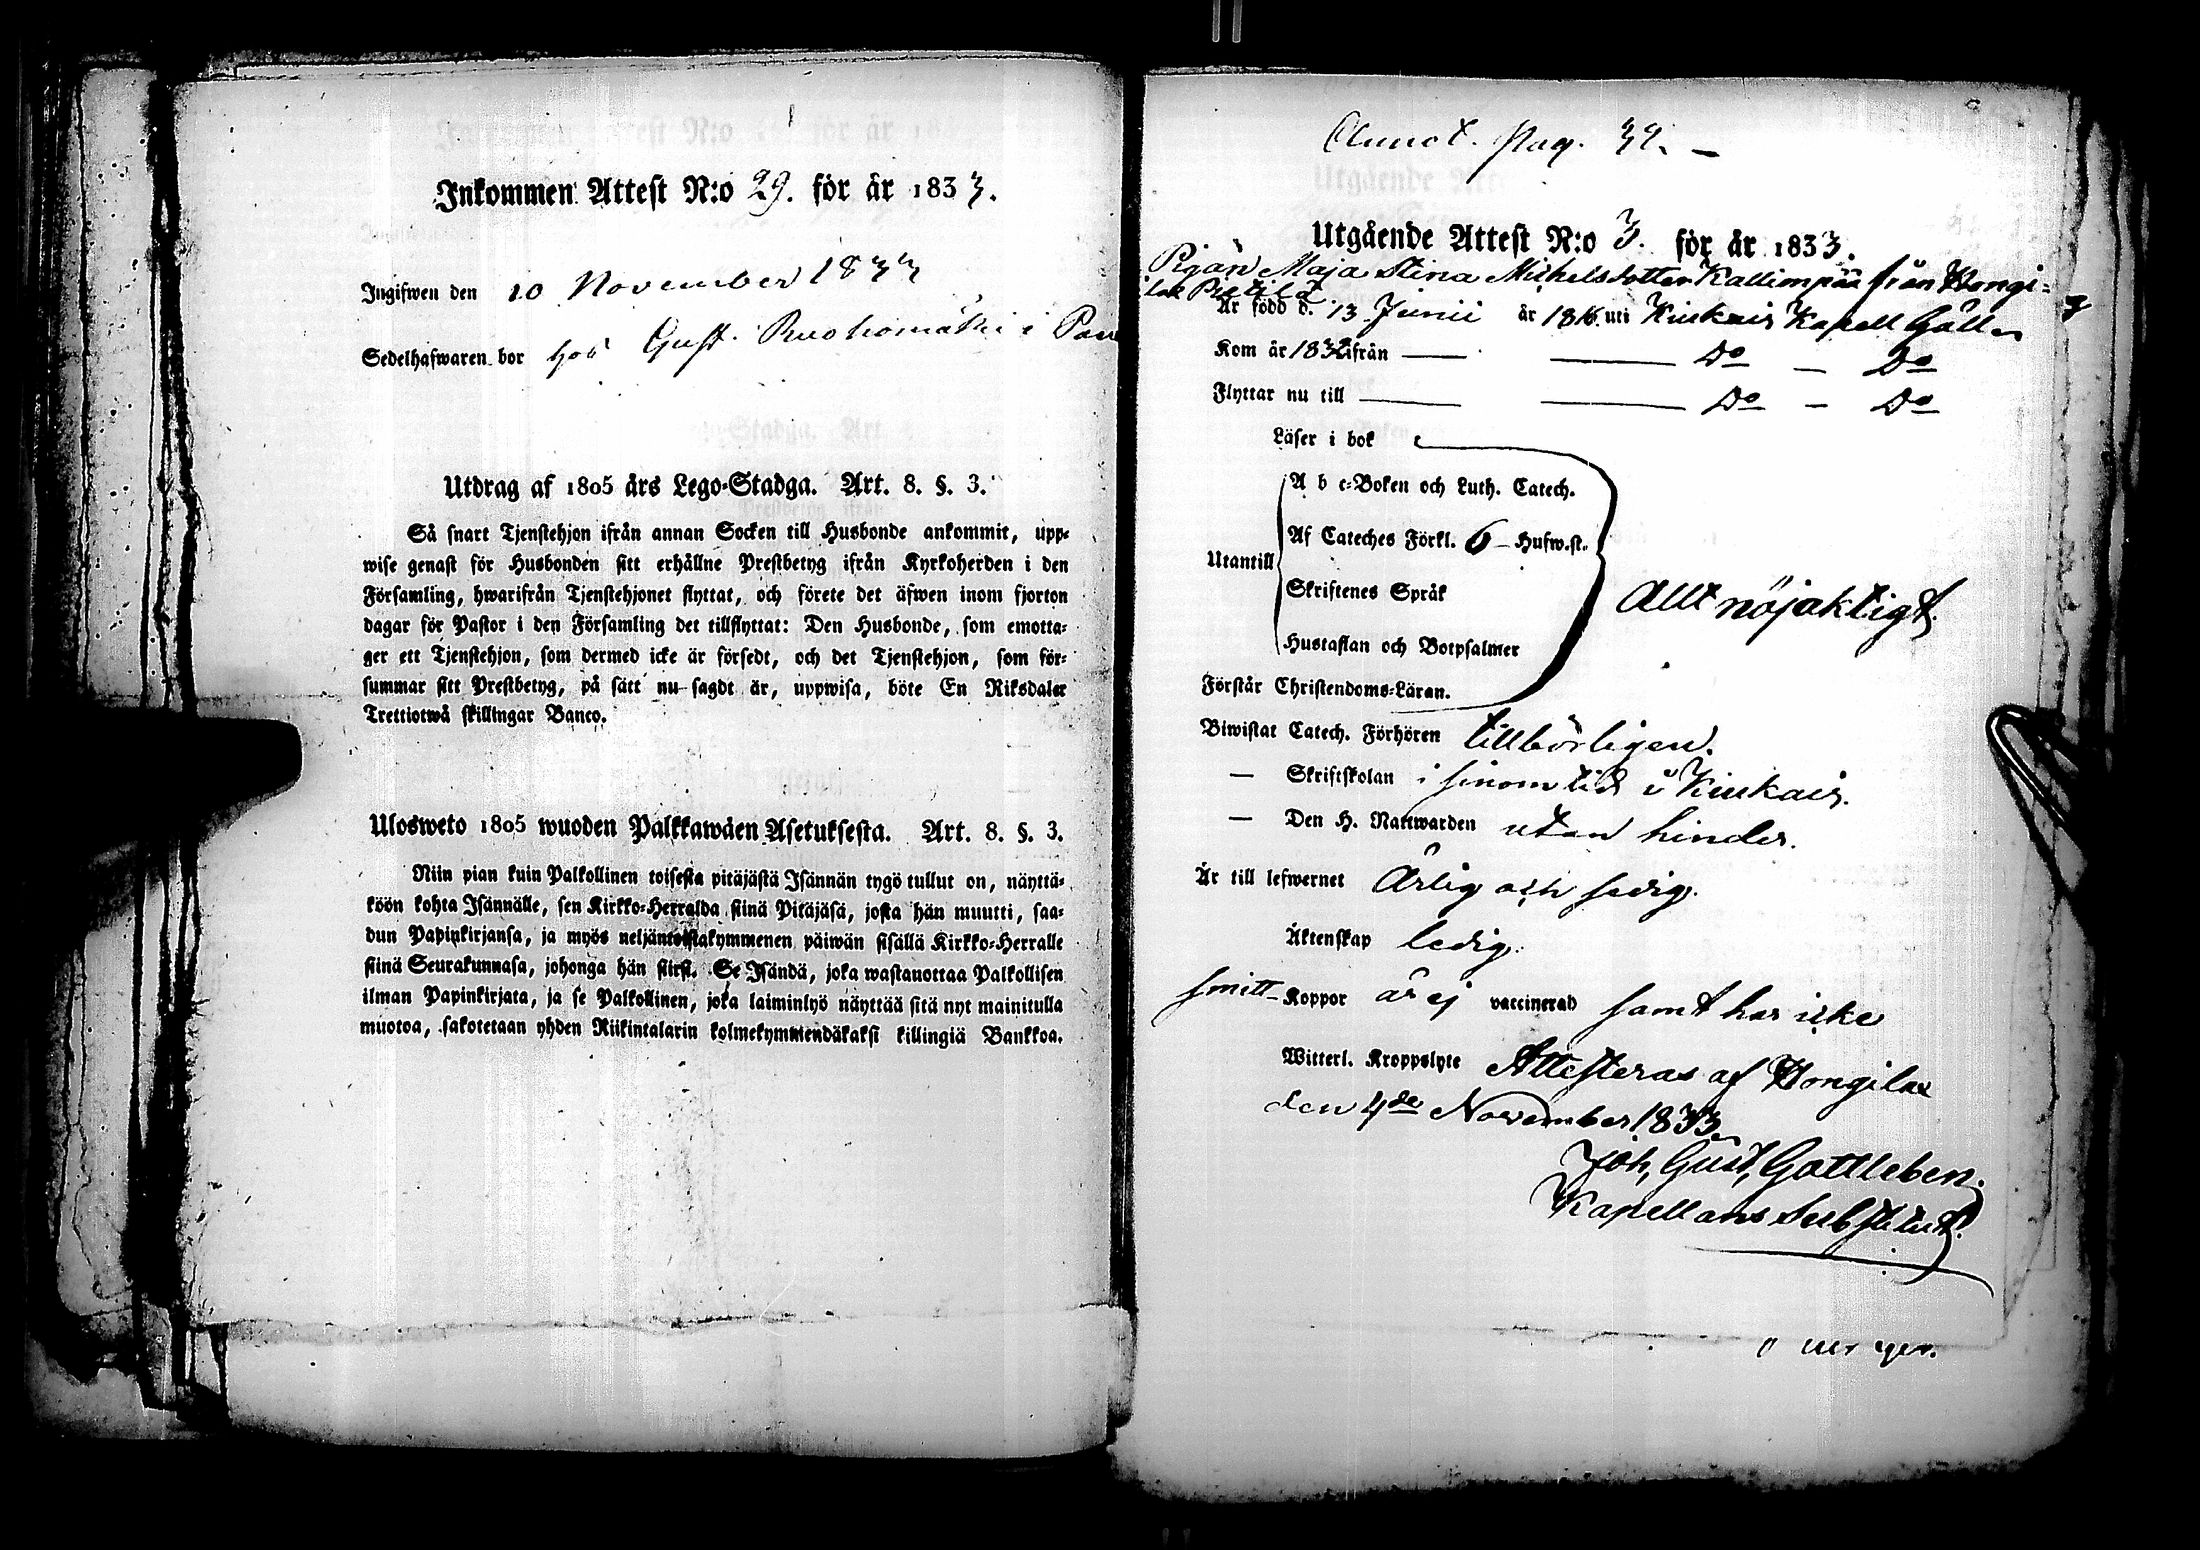 Inkommen Attest N:o 29. för år 1833.
Ingifwen den 10 November 1833
Sedelhafwaren bor hos Gust. Ruohomäki i
Utdrag af 1805 års Lego-Stadga. Art. 8. §. 3.
Så snart Tjenstehjon ifrån annan Socken till Husbonde ankommit, upp-
wise genast för Husbonden sitt erhållne Prestbetyg ifrån Kyrkoherden i den
Församling, hwarifrån Tjenstehjonet flyttat, och förete det äfwen inom fjorton
dagar för Pastor i den Församling det tillflyttat: Den Husbonde, som emotta-
ger ett Tjenstehjon, som dermed icke är försedt, och det Tjenstehjon, som för-
summar sitt Prestbetyg, på sätt nu sagdt är, uppwisa, böte En Riksdaler
Trettiotwå skillingar Banco.
Ulosweto 1805 wuoden Palkkawäen Asetuksesta. Art. 8. §. 3.
Niin pian kuin Palkollinen toisesta pitäjästä Isännän tygö tullut on, näyttä-
köön kohta Isännälle, sen Kirkko-Herralda siinä Pitäjäsä, josta hän muutti, saa-
dun Papinkirjansa, ja myös neljäntoistakymmenen päiwän sisällä Kirkko-Herralle
siinä Seurakunnasa, johonga hän siirsi. Se Isändä, joka wastanottaa Palkollisen
ilman Papinkirjata, ja se Palkollinen, joka laiminlyö näyttää sitä nyt mainitulla
muotoa, sakotetaan yhden Riikintalarin kolmekymmendäkaksi killingiä Bankkoa.
Annot. Pag. 39. –
Utgående Attest N:o 3. för år 1833.
Pigan Maja Stina Michelsdotter Kallimpää från Hongi-
Är född d. 13 Junii år 1816. uti Kiukais Kapell
Kom år 1832 ifrån — — Do — Do
Flyttar nu till — — Do — Do
Läser i bok
A b c-Boken och Luth. Catech.
Af Cateches Förkl. 6 – Hufw.st.
Utantill
Skriftenes Språk
Allt nöjaktigt.
Hustaflan och Botpsalmer
Förstår Christendoms-Läran.
Biwistat Catech. Förhören tillbörligen.
— Skriftskolan i sinom tid i Kiukais.
— Den H. Nattwarden utan hinder.
Är till lefwernet Ärlig och sedig.
Äktenskap ledig.
Smitt- Koppor är ej vaccinerad samt har icke
Witterl. Kroppslyte Attesteras af Hongilax
den 4de November 1833
Joh. Gust. Gottleben.
Kapellans Substitut.